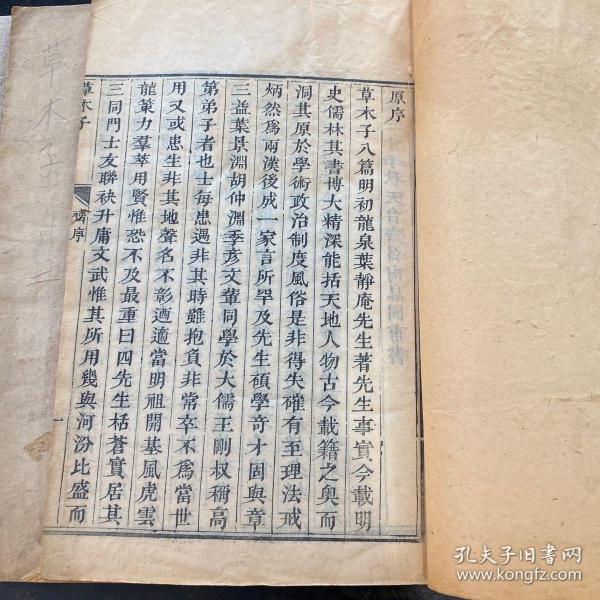 原序
草木子八篇明初龍泉葉靜庵先生著先生事實今載明
史儒林其書博大精深能括天地人物古今載籍之奧而
洞其原於學術政治制度風俗是非得失確有至理法戒
炳然為兩漢後成一家言所罕及先生碩學奇才固與章
三益葉景淵胡仲淵季彥文輩同學於大儒王剛叔稱高
第弟子者也士每患遇非其時雖抱負非常卒不為當世
用又或患生非其地聲名不彰迺適當明祖開基風虎雲
龍策力羣萃用賢惟恐不及最重曰四先生栝蒼實居其
三同門士友聯袂升庸文武惟其所用幾與河汾比盛而
草木子
舊序
一
草木子
二
孔夫子旧书网
www.kongfz.com